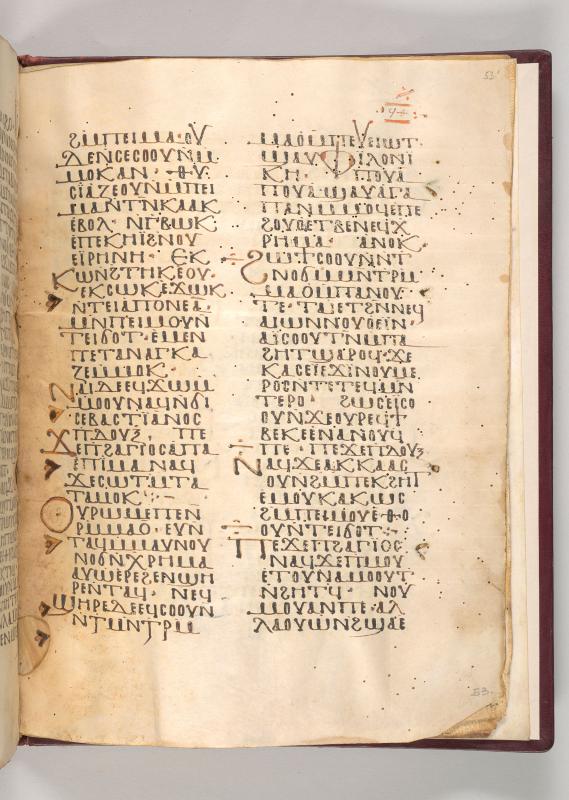 53
ϩⲙⲡⲉⲓⲙⲁ·ⲟⲩ
ⲇⲉⲛⲥⲉⲥⲟⲟⲩⲛⲙ
ⲙⲟⲕⲁⲛ·ⲑⲩ
ⲥⲓⲁⲍⲉⲟⲩⲛⲙⲡⲉⲓ
ⲙⲁⲛⲧⲛⲕⲁⲁⲕ
ⲉⲃⲟⲗ·ⲛⲅⲃⲱⲕ
ⲉⲡⲉⲕⲏⲓϩⲛⲟⲩ
ⲉⲓⲣⲏⲛⲏ· ⲉⲕ
ⲕⲱⲛⲥⲧⲏⲕⲉⲟⲩ
ⲉⲕⲥⲱⲕⲉϫⲱⲕ
ⲛⲧⲉⲓⲁⲡⲟⲛⲉⲁ
ⲙⲛⲡⲉⲓⲙⲟⲩⲛ
ⲧⲉⲓϭⲟⲧ·ⲉⲙⲉⲛ
ⲡⲉⲧⲁⲛⲁⲅⲕⲁ
ⲍⲉⲙⲙⲟⲕ·
ⲛⲁⲓⲇⲉⲉϥϫⲱⲙ
ⲙⲟⲟⲩⲛⲁϥⲛϭⲓ
ⲥⲉⲃⲁⲥⲧⲓⲁⲛⲟⲥ
ⲡⲇⲟⲩⲝ· ⲡⲉ
ϫⲉⲡϩⲁⲅⲓⲟⲥⲁⲡⲁ
ⲉⲡⲓⲙⲁ ⲛⲁϥ
ϫⲉⲥⲱⲧⲙⲧⲁ
ⲧⲁⲙⲟⲕ
ⲟⲩⲣⲱⲙⲉⲡⲉⲛ
ⲣⲙⲙⲁⲟ·ⲉⲩⲛ
ⲧⲁϥⲙⲙⲁⲩⲛⲟⲩ
ⲛⲟϭⲛⲭⲣⲏⲙⲁ
ⲁⲩⲱⲉⲣⲉϩⲉⲛϣⲏ
ⲣⲉⲛⲧⲁϥ· ⲛⲉϥ
ϣⲏⲣⲉⲇⲉⲉϥⲥⲟⲟⲩⲛ
ⲛⲧⲙⲛⲧⲣⲙ
ⲙⲁⲟⲙⲡⲉⲩⲉⲓⲱⲧ
ϣⲁⲩⲫⲓⲗⲟⲛⲓ
ⲕⲏ· ⲡⲟⲩⲁ
ⲡⲟⲩⲁ·ϣⲁⲩⲁⲅⲁ
ⲡⲁⲛⲙⲙⲟϥⲉⲡⲉ
ϩⲟⲩⲟⲉⲧⲃⲉⲛⲉϥⲭ
ⲣⲏⲙⲁ· ⲁⲛⲟⲕ
ϩⲱⲧⲥⲟⲟⲩⲛⲛⲧ
ⲛⲟϭⲙⲙⲛⲧⲣⲙ
ⲙⲁⲟⲙⲡⲁⲛⲟⲩ
ⲧⲉ·ⲧⲁⲓⲉⲧϩⲛⲛⲉϥ
ⲁⲓⲱⲛⲛⲟⲩⲟⲉⲓⲛ
ⲁⲓⲥⲟⲟⲩⲧⲛⲙⲡⲁ
ϩⲏⲧϣⲁⲣⲟϥ·ϫⲉ
ⲕⲁⲥⲉⲓⲉϫⲓⲛⲟⲩⲙⲉ
ⲣⲟⲥϩⲛⲧⲉϥⲙⲛ
ⲧⲉⲣⲟ· ϣⲥⲉⲓⲥⲟ
ⲟⲩⲛϫⲉⲟⲩⲣⲉϥϯ
ⲃⲉⲕⲉⲉⲛⲁⲛⲟⲩϥ
ⲡⲉ·ⲡⲉϫⲉⲡⲇⲟⲩⲝ
ⲛⲁϥϫⲉⲁⲕⲕⲁⲁⲥ
ⲟⲩⲛϩⲙⲡⲉⲕϩⲏⲧ
ⲉⲙⲟⲩⲕⲁⲕⲱⲥ
ϩⲙⲡⲉⲙⲟⲩⲉⲑⲟ
ⲟⲩⲛⲧⲉⲓϭⲟⲧ
ⲡⲉϫⲉⲡϩⲁⲅⲓⲟⲥ
ⲛⲁϥϫⲉⲡⲙⲟⲩ
ⲉⲧⲟⲩⲛⲁⲙⲟⲟⲩⲧ
ⲛϩⲏⲧϥ· ⲛⲟⲩ
ⲙⲟⲩⲁⲛⲡⲉ·ⲁⲗ
ⲗⲁⲟⲩⲱⲛϩϣⲁⲉ
53